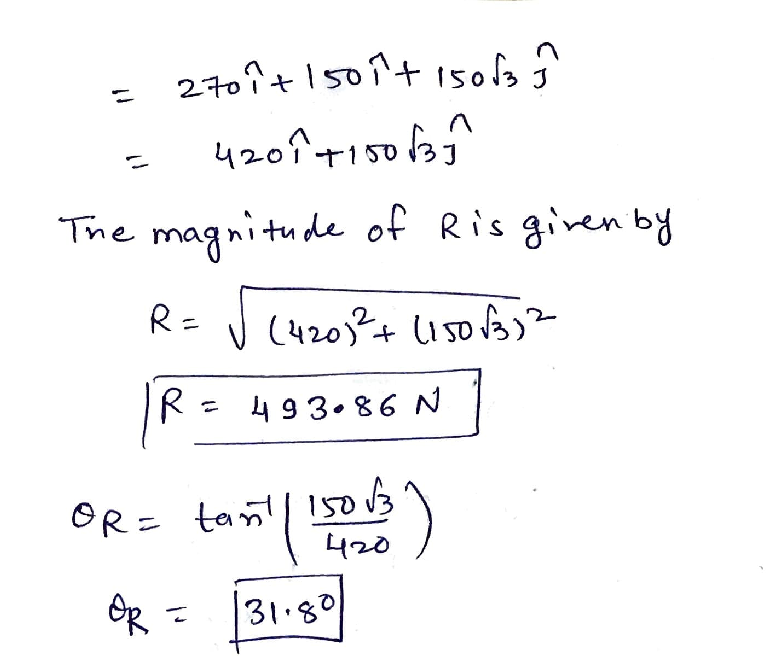 = 270î + 150î + 150√3 ĵ
= 420î + 150√3 ĵ
The magnitude of R is given by
R = √(420)² + (150√3)²
R = 493.86 N
θR = tan⁻¹(150√3/420)
θR = 31.8°